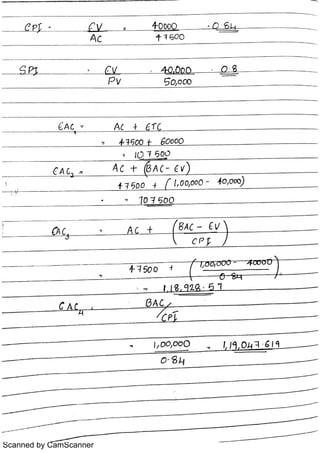 CPI = EV = 40000 = 0.84
AC 47500
SPI = EV = 40,000 = 0.8
PV 50,000
EAC1 = AC + ETC
= 47500 + 60000
= 107500
EAC2 = AC + (BAC - EV)
47500 + (1,00,000 - 40,000)
= 107500
EAC3 = AC + (BAC - EV)
CPI
= 47500 + (1,00,000 - 40000)
0.84
= 1,18,928.57
EAC4 = BAC/
CPI
= 1,00,000 = 1,19,047.619
0.84
Scanned by CamScanner